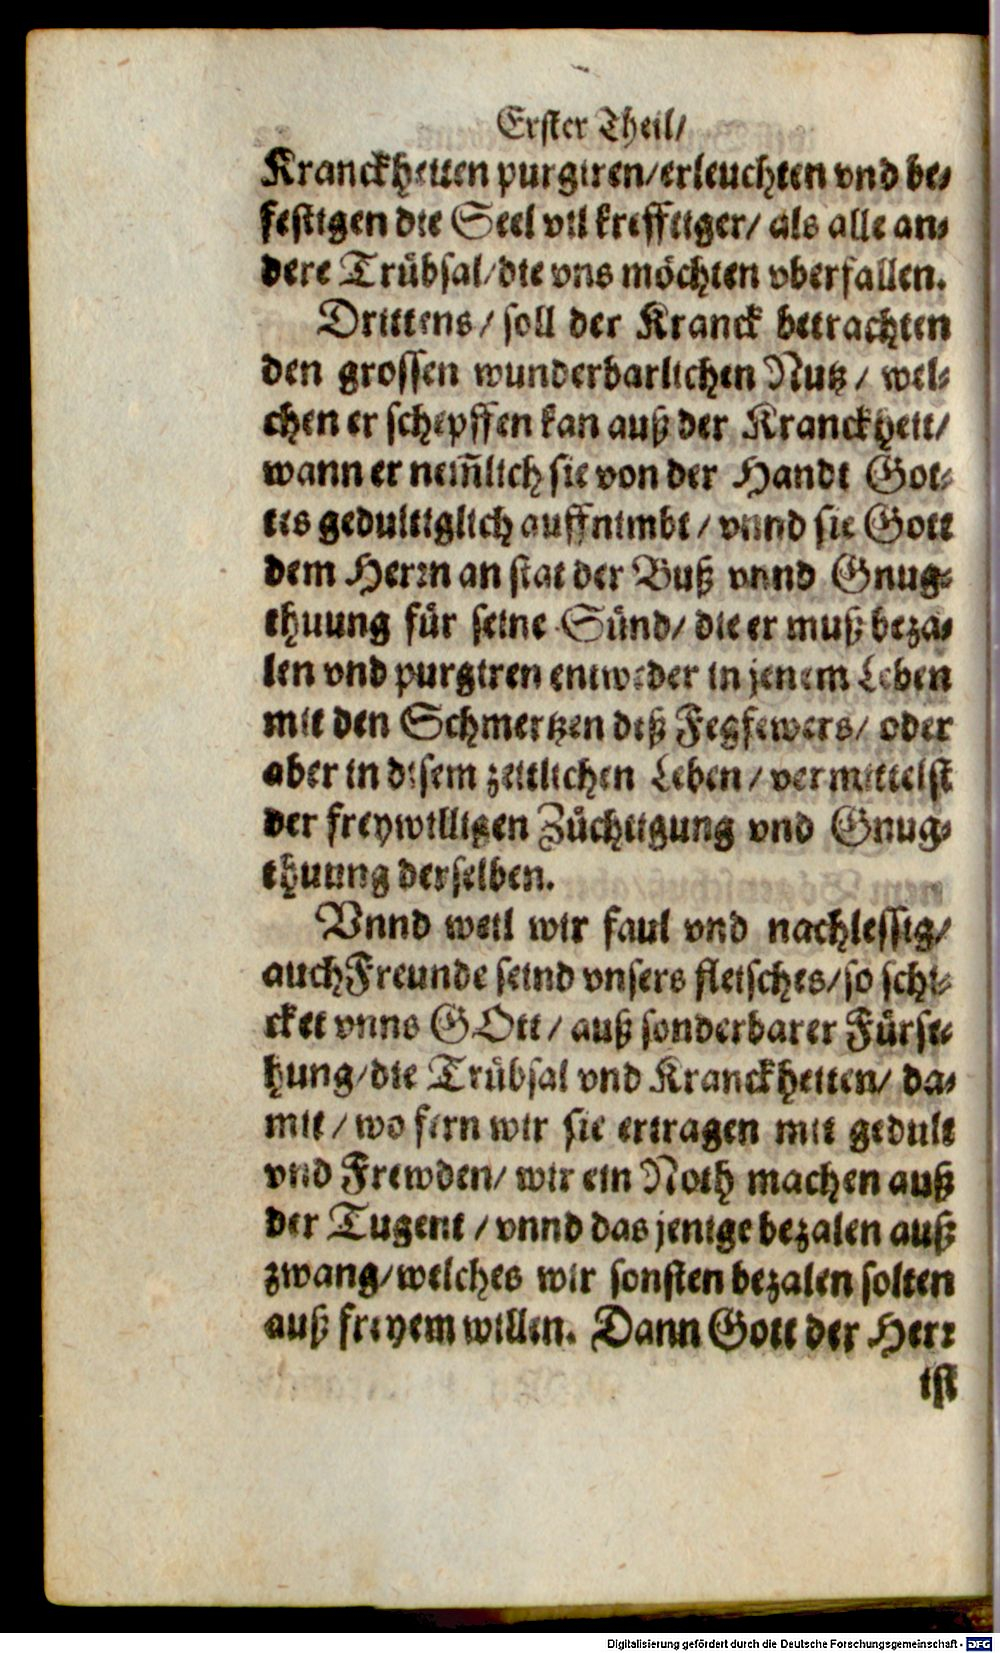 Erster Theil/
Kranckheiten purgiren/erleuchten vnd be-
festigen die Seel vil krefftiger/ als alle an-
dere Trübsal/die vns möchten vberfallen.
Drittens/ soll der Kranck betrachten
den grossen wunderbarlichen Nutz/ wel-
chen er schepffen kan auß der Kranckheit/
wann er nem̃lich sie von der Handt Got-
tes gedultiglich auffnimbt/ vnnd sie Gott
dem Herrn an stat der Buß vnnd Gnug-
thuung für seine Sünd/ die er muß beza-
len vnd purgiren entweder in jenem Leben
mit den Schmertzen deß Fegfewers/ oder
aber in disem zeitlichen Leben/ vermittelst
der freywilligen Züchtigung vnd Gnug-
thuung derselben.
Vnnd weil wir faul vnd nachlessig/
auch Freunde seind vnsers fleisches/so schi-
cket vnns GOtt/ auß sonderbarer Fürse-
hung/die Trübsal vnd Kranckheiten/ da-
mit/ wo fern wir sie ertragen mit gedult
vnd Frewden/ wir ein Noth machen auß
der Tugent/ vnnd das jenige bezalen auß
zwang/welches wir sonsten bezalen solten
auß freyem willen. Dann Gott der Herr
ist
Digitalisierung gefördert durch die Deutsche Forschungsgemeinschaft - DFG